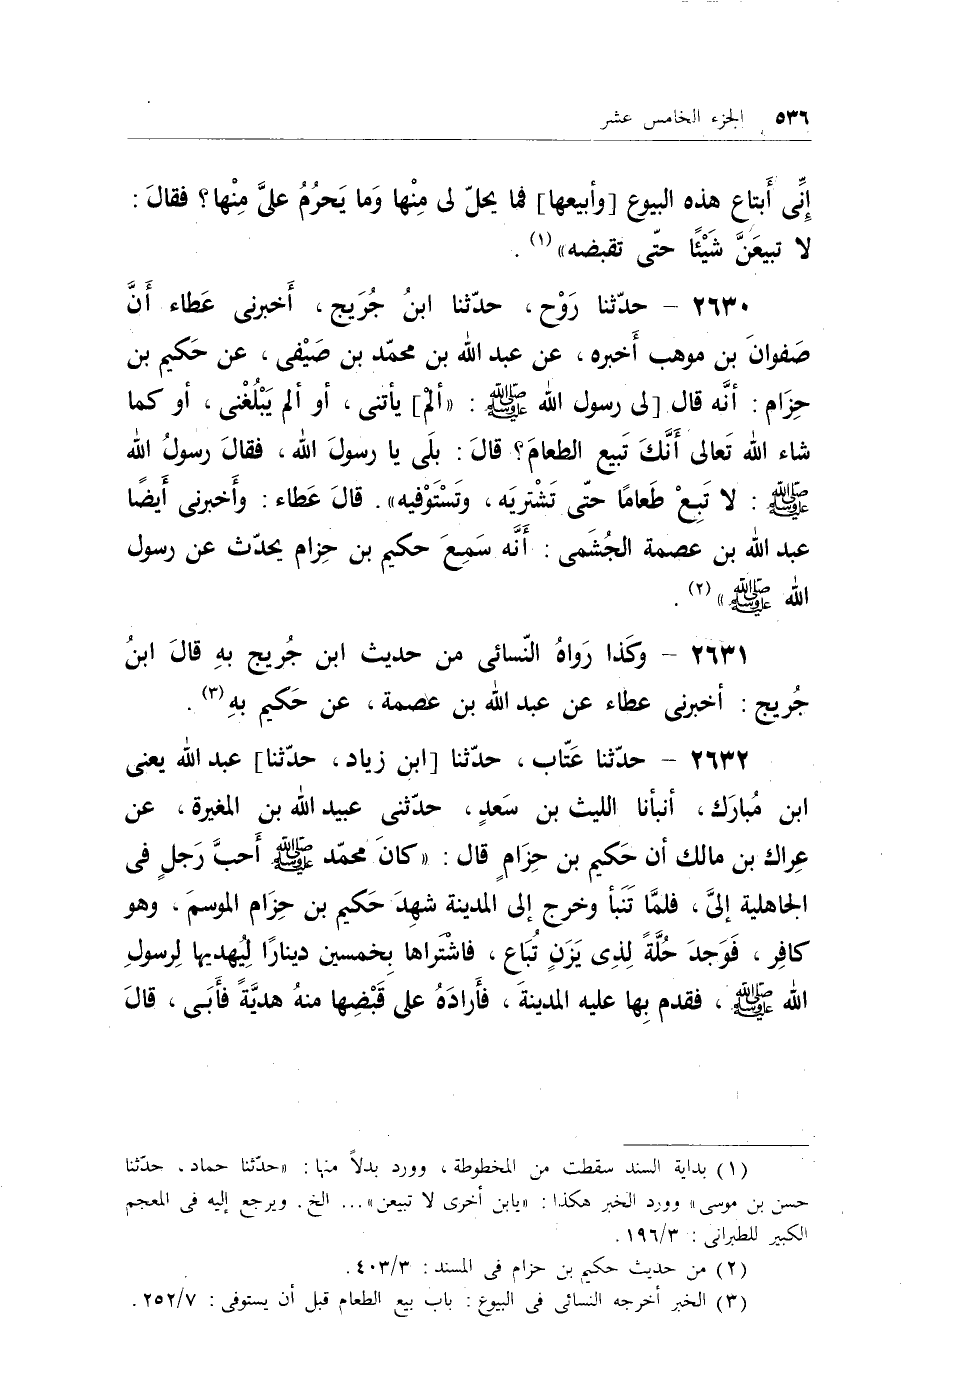 ٥٣٦ الجزء الخامس عشر
إِنِّى أَبتاع هذه البيوع [وأبيعها] فما يحلّ لى مِنْها وَما يَحرُمُ علىَّ مِنْها؟ فقالَ :
لا تبيعَنَّ شَيْئًا حتّى تقبضه» (١) .
٢٦٣٠ - حدّثنا رَوْح، حدّثنا ابنُ جُرَيج، أَخبرنى عَطاء أَنَّ
صَفوانَ بن موهب أَخبره، عن عبد الله بن محمّد بن صَيْفى، عن حَكيم بن
حِزَام : أنَّه قال [لى رسول الله ﷺ : «ألمْ] يأتنى، أو ألم يَبْلُغْنى، أو كما
شاء الله تَعالى أَنَّكَ تَبيع الطعامَ؟ قالَ : بلَى يا رسولَ الله، فقالَ رسولُ الله
ﷺ : لا تَبِعْ طَعامًا حتّى تَشْتريَه، وتَسْتَوْفيه». قالَ عَطاء : وأَخبرنى أَيضًا
عبد الله بن عصمة الجُشَمى : أنَّه سَمِعَ حكيم بن حِزام يحدّث عن رسول
الله ﷺ» (٢) .
٢٦٣١ - وكَذا رَواهُ النّسائى من حديث ابن جُريج بهِ قالَ ابنُ
جُريج : أخبرنى عطاء عن عبد الله بن عصمة، عن حَكيم بهِ (٣) .
٢٦٣٢ - حدّثنا عَتّاب، حدّثنا [ابن زياد، حدّثنا] عبد الله يعنى
ابن مُبارَك، أنبأنا الليث بن سَعدٍ، حدّثنى عبيد الله بن المغيرة، عن
عِراك بن مالك أن حَكيم بن حِزَامٍ قال : «كانَ محمّد ﷺ أَحبَّ رَجلٍ فى
الجاهلية إلىَّ، فلمَّا تَنَبأ وخرج إلى المدينة شهِدَ حَكيم بن حِزام الموسمَ، وهو
كافِر، فَوَجدَ حُلَّةً لِذِى يَزَنٍ تُبَاع، فاشْتَراها بِخمسين دينارًا لِيُهديها لِرسولِ
الله ﷺ، فقدم بِها عليه المدينةَ، فأَرادَهُ على قَبْضِها منهُ هديَّةً فأَبَى، قالَ
(١) بداية السند سقطت من المخطوطة، وورد بدلاً منها : «حدّثنا حماد، حدّثنا
حسن بن موسى» وورد الخبر هكذا : «يابن أخرى لا تبيعن»... الخ. ويرجع إليه فى المعجم
الكبير للطبرانى : ١٩٦/٣ .
(٢) من حديث حكيم بن حزام فى المسند : ٤٠٣/٣ .
(٣) الخبر أخرجه النسائى فى البيوع : باب بيع الطعام قبل أن يستوفى : ٢٥٢/٧ .